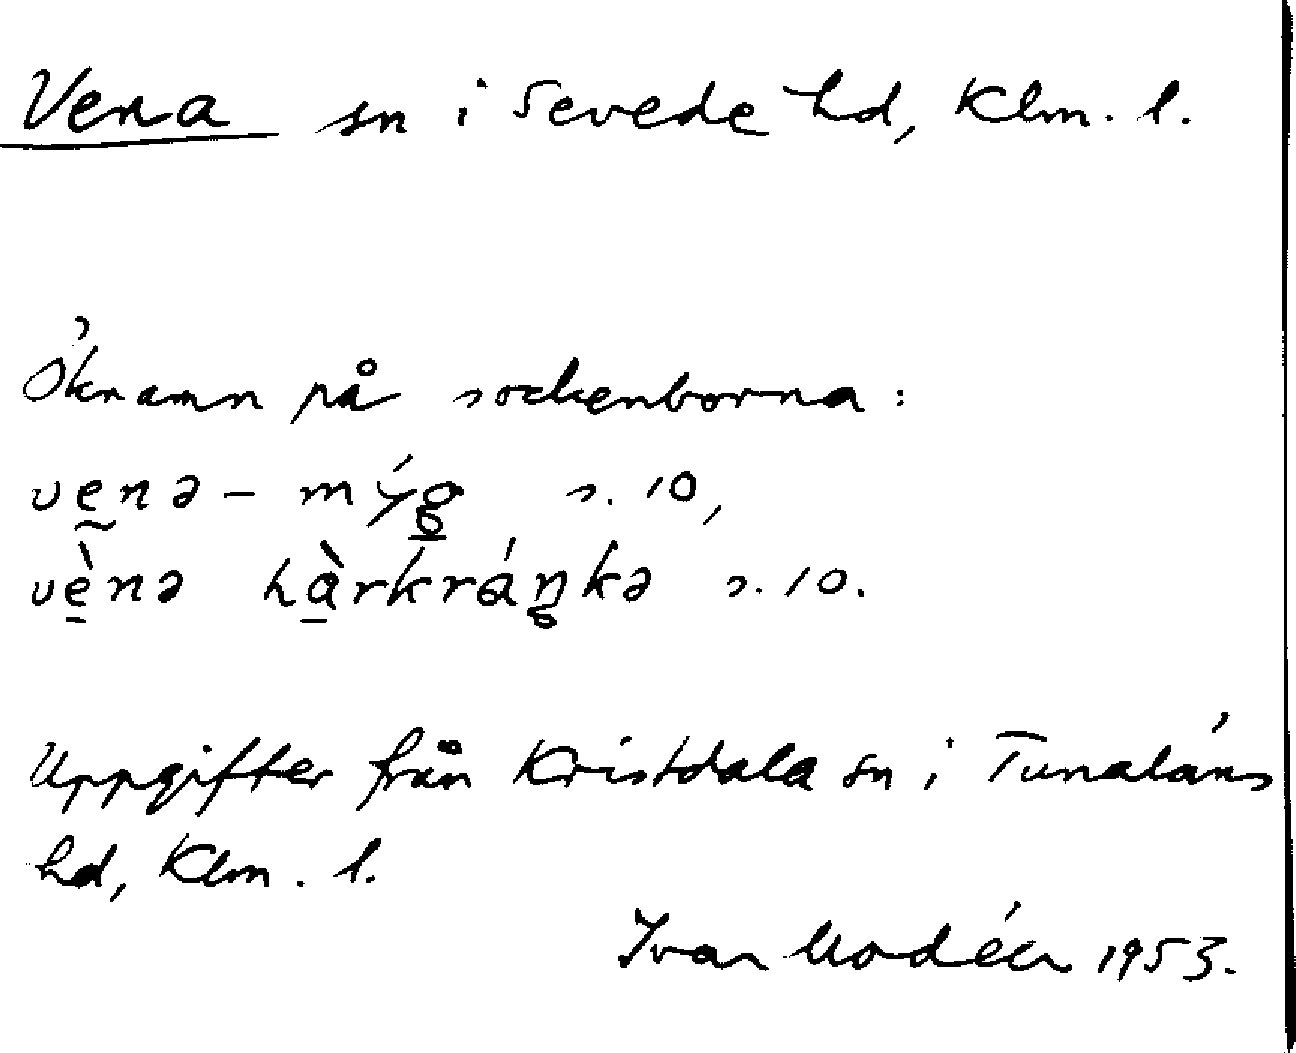 Vena sn i Sevede hd, Klm. l.
Öknamn på sockenborna:
vḛnə - mýg̱ s. 10,
vè̱nə hà̱rkráŋkə s. 10.
Uppgifter från Kristdala sn i Tunaläns
hd, Klm. l.
Ivar Modéer 1953.